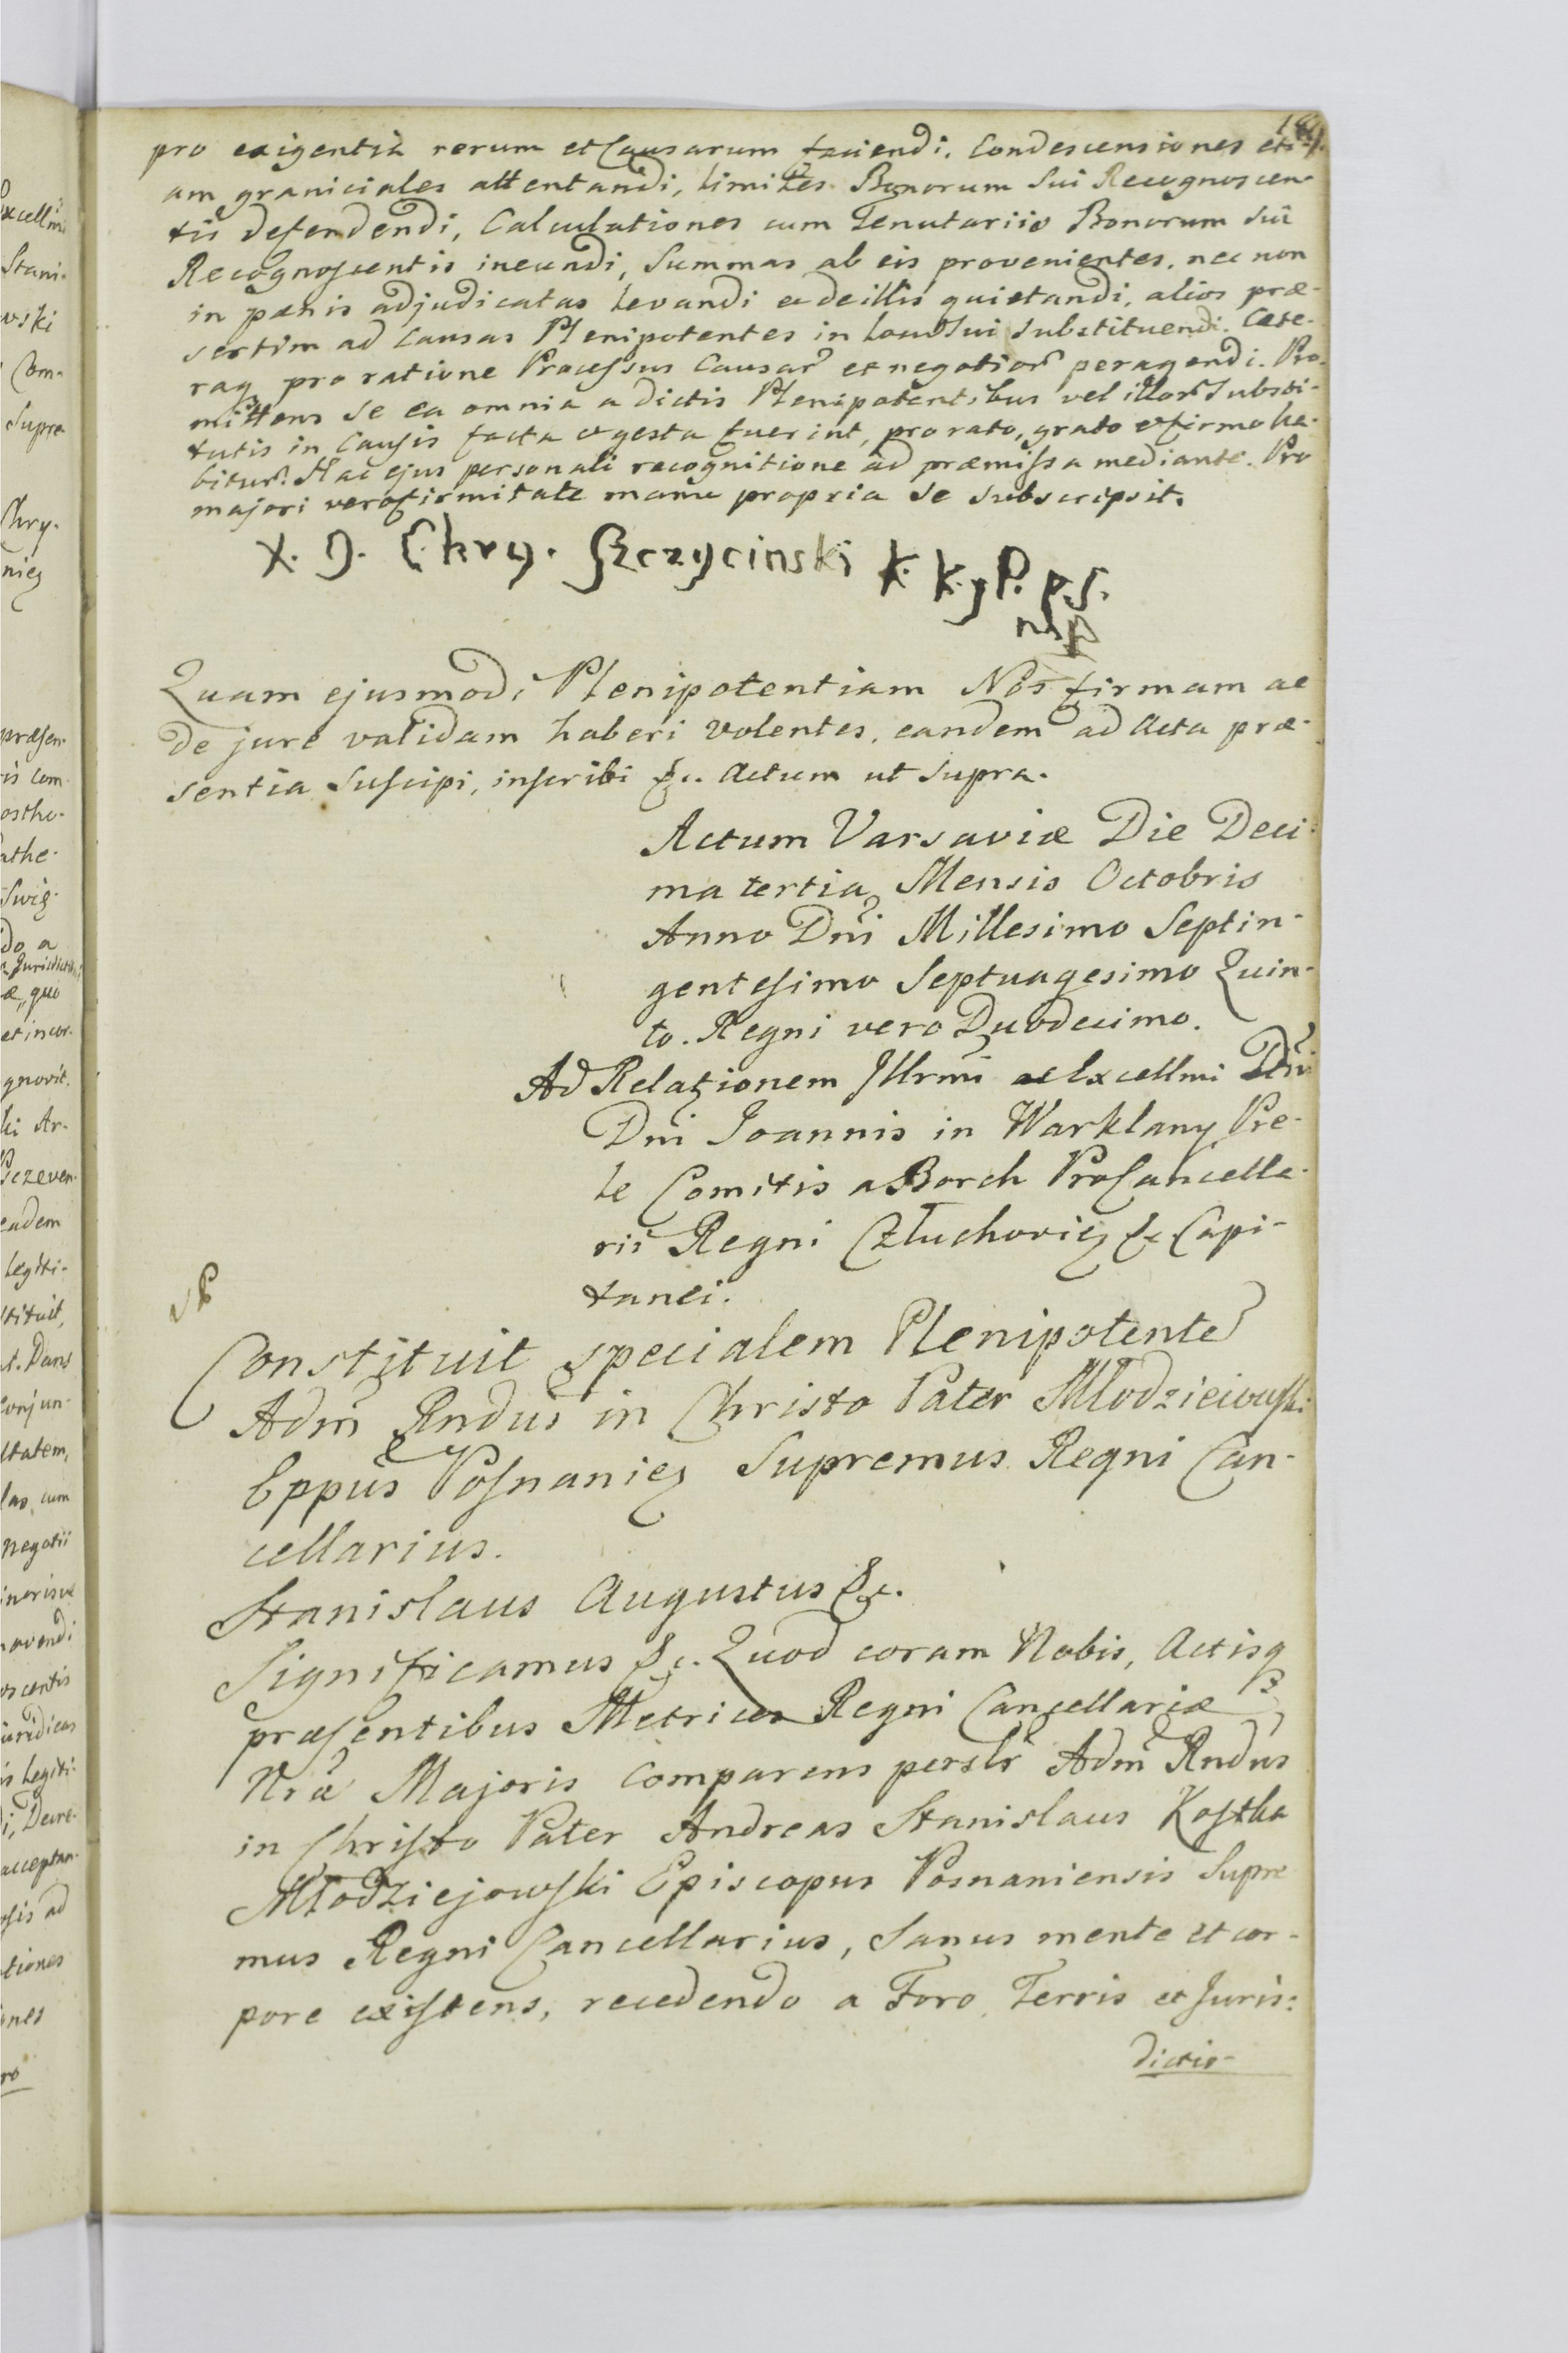 pro exigentia rerum et Causarum faciendi. Condescensiones eti-
am graniciales attentandi, limites Bonorum Sui Recognoscen-
tis defendendi, Calculationes cum Tenutariis Bonorum sui
Recognoscentis ineundi, Summas ab eis provenientes, nec non
in pænis adjudicatas levandi et de illis quietandi, alios præ-
sertim ad Causas Plenipotentes in locu Sui Substituendi. Cete-
raq pro ratione Processus Causar et negotior peragendi. Pro-
mittens se ea omnia a dictis Plenipotentibus vel illor Substi-
tutis in Causis facta et gesta fuerint, pro rato, grato et firmo ha-
bitur. Hac ejus personali recognitione ad præmissa mediante. Pro
majori vero firmitate manu propria se subscripsit.
X. J. Chry. Szczycinski K. K. y P. p.s.
mp
Quam ejusmodi Plenipotentiam Nos firmam ac
de jure validam haberi volentes, eandem ad Acta præ-
sentia Suscipi, inscribi &c. Actum ut Supra.
Actum Varsaviæ Die Deci-
ma tertia Mensis Octobris
Anno Dni Millesimo Septin-
gentesimo Septuagesimo Quin-
to. Regni vero Duodecimo.
Ad Relationem Illrmi ac Excellmi Dni
Dni Joannis in Warklany Pre-
le Comitis a Borch ProCancella-
rii Regni Człuchovien &c Capi-
tanei.
Constituit specialem Plenipotente
Adm Rndus in Christo Pater Młodzieiowski
Eppus Posnanien Supremus Regni Can-
cellarius.
Stanislaus Augustus &c.
Significamus &c. Quod coram Nobis, Actisq
præsentibus Metrices Regni Cancellariæ
Nræ Majoris Comparens perslr Adm Rndus
in Christo Pater Andreas Stanislaus Kostka
Młodziejowski Episcopus Posnaniensis Supre
mus Regni Cancellarius, Sanus mente et cor-
pore existens, recedendo a Foro Terris et Juris:
dictio-